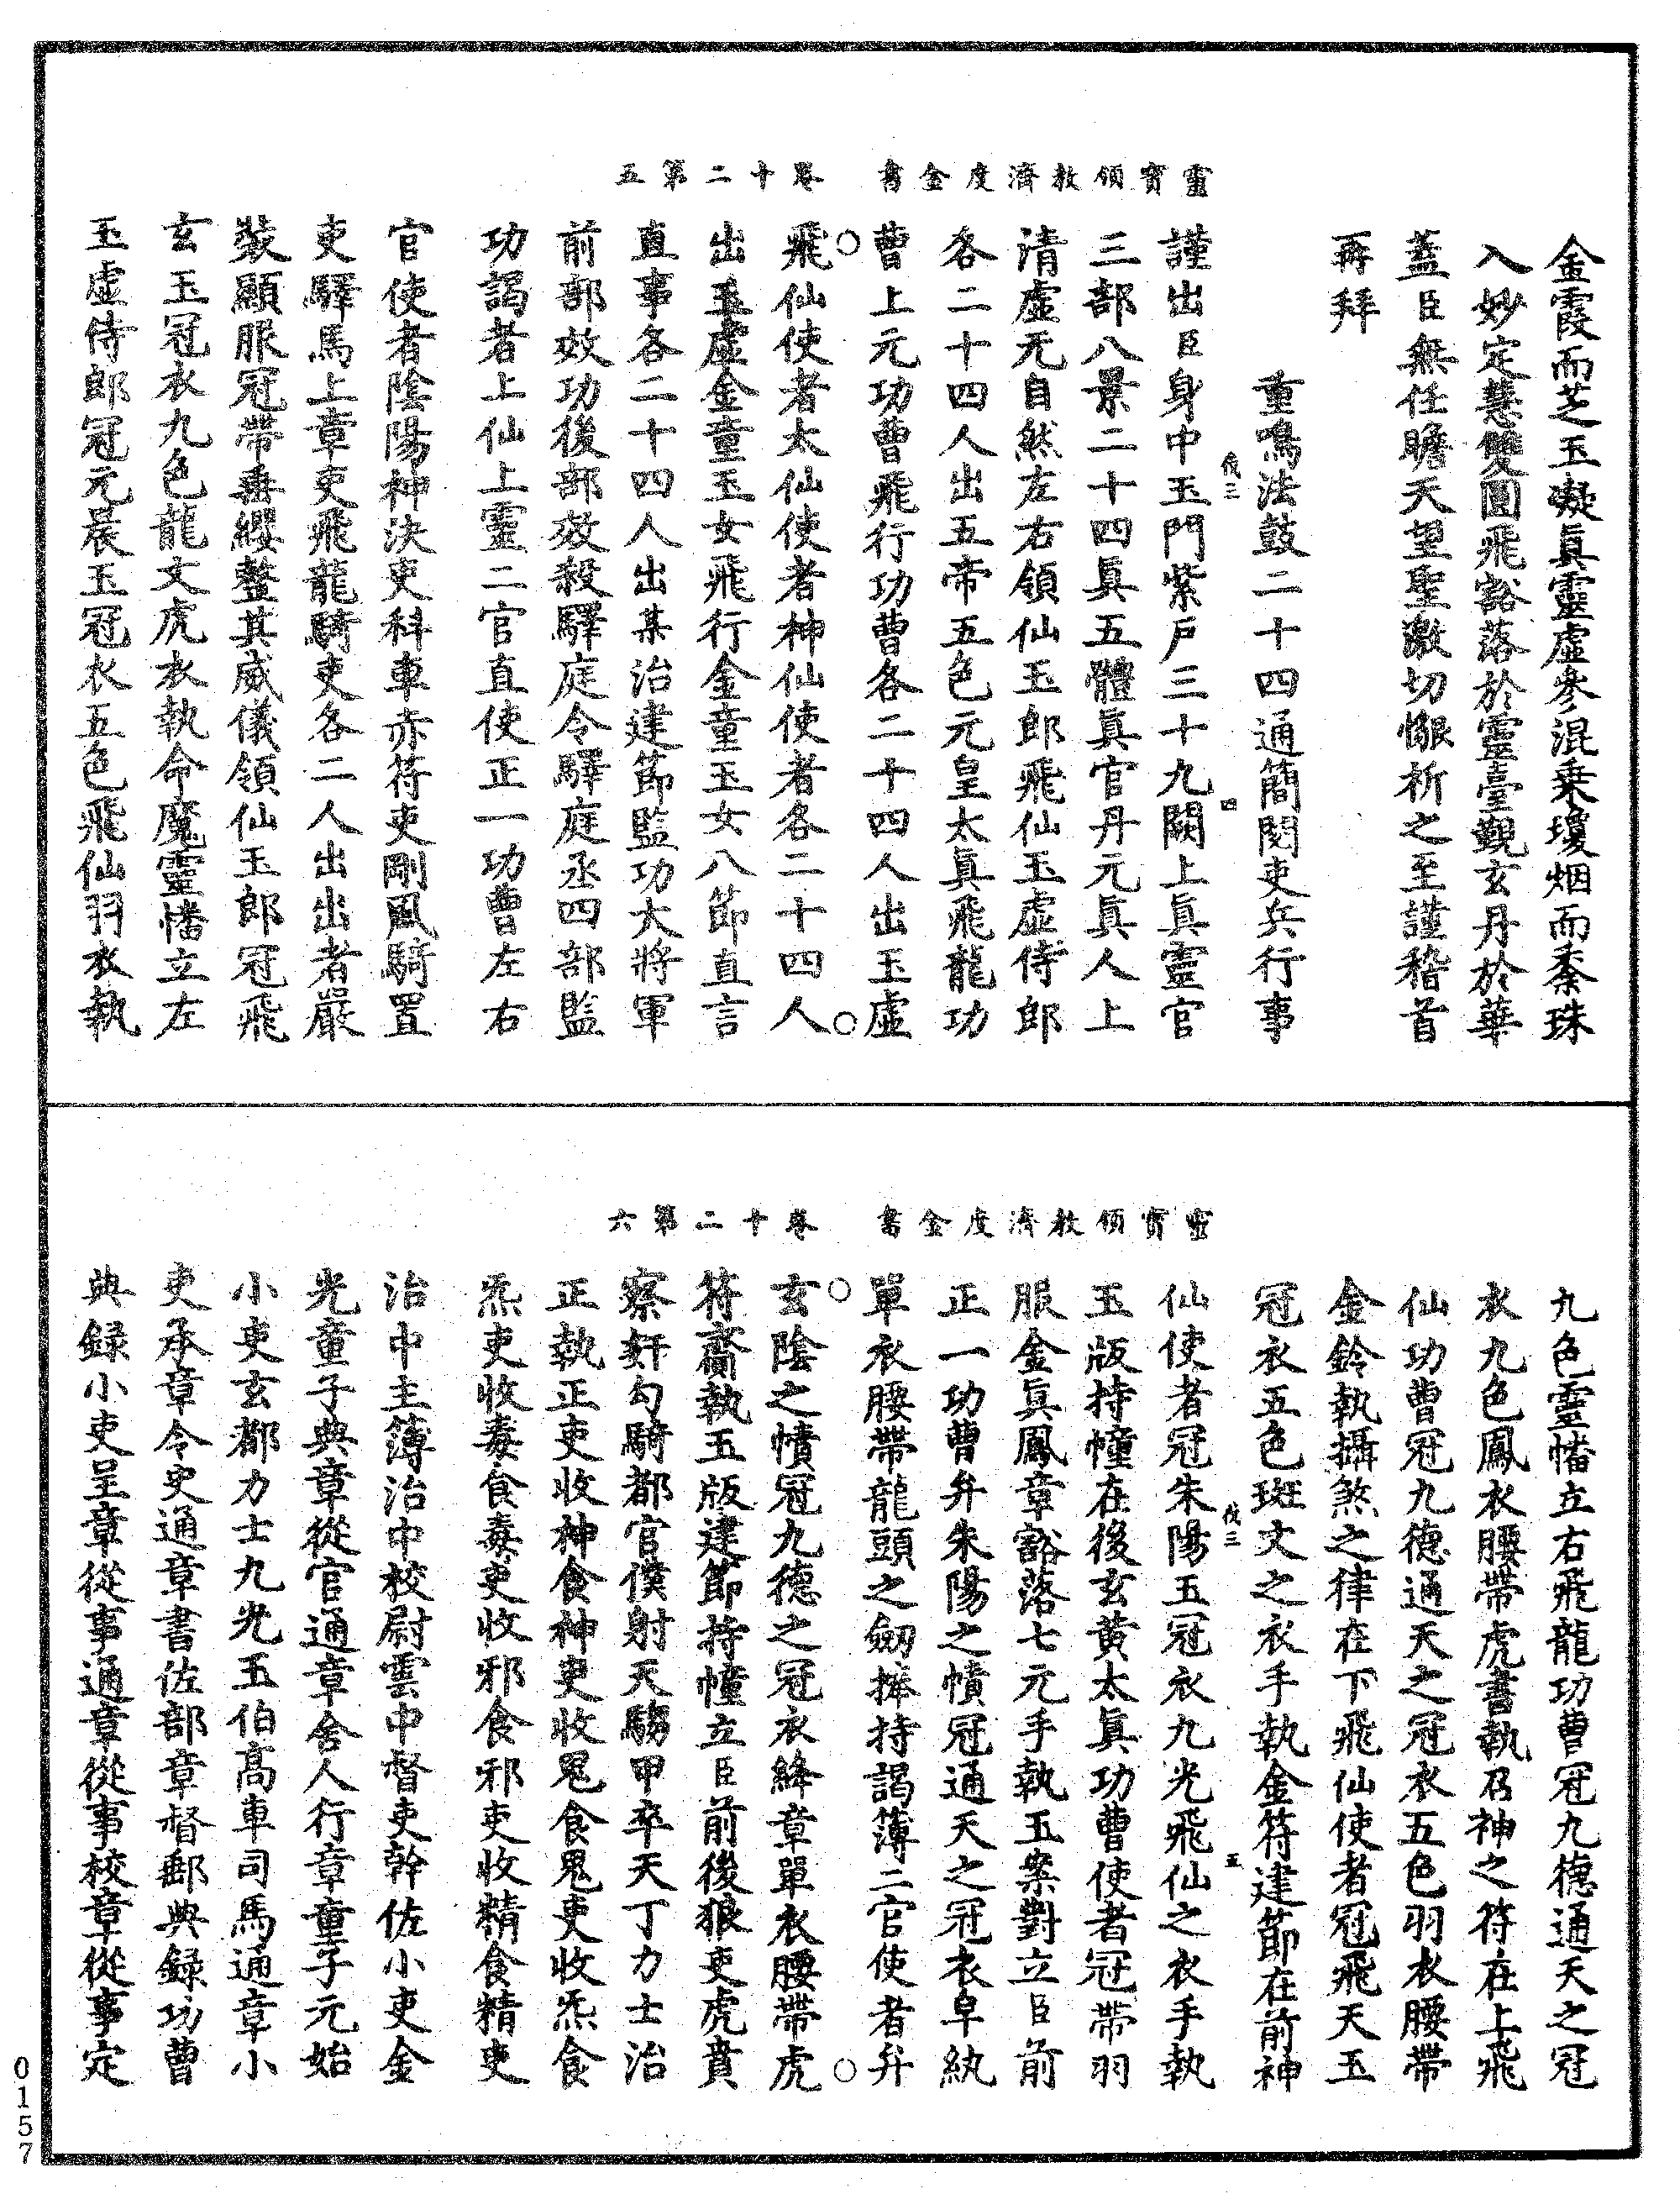 靈寶領教濟度金書 卷十二第五
金霞而芝玉凝眞靈虛參混乗瓊烟而黍珠
入妙定慧雙圓飛豁落於靈臺觀玄丹於華
蓋臣無任瞻天望聖激切懇祈之至謹稽首
再拜
重鳴法鼓二十四通簡閱吏兵行事
伐三
四
謹出臣身中玉門紫戸三十九闕上眞靈官
三部八景二十四眞五體眞官丹元眞人上
清虛无自然左右領仙玉郎飛仙玉虛侍郎
各二十四人出五帝五色元皇太眞飛龍功
曹上元功曹飛行功曹各二十四人出玉虛
飛仙使者太仙使者神仙使者各二十四人
出玉虛金童玉女飛行金童玉女八節直言
直事各二十四人出某治建節監功大將軍
前部效功後部效殺驛庭令驛庭丞四部監
功謁者上仙上靈二官直使正一功曹左右
官使者陰陽神決吏科車赤符吏剛風騎置
吏驛馬上章吏飛龍騎吏各二人出出者嚴
裝顯服冠帶垂纓整其威儀領仙玉郎冠飛
玄玉冠衣九色龍文虎衣執命魔靈幡立左
玉虛侍郎冠元晨玉冠衣五色飛仙羽衣執
靈寶領教濟度金書 卷十二第六
九色靈幡立右飛龍功曹冠九德通天之冠
衣九色鳳衣腰帶虎書執召神之符在上飛
仙功曹冠九德通天之冠衣五色羽衣腰帶
金鈴執攝煞之律在下飛仙使者冠飛天玉
冠衣五色斑文之衣手執金符建節在前神
伐三
五
仙使者冠朱陽五冠衣九光飛仙之衣手執
玉版持幢在後玄黃太眞功曹使者冠帶羽
服金眞鳳章豁落七元手執玉案對立臣前
正一功曹弁朱陽之幘冠通天之冠衣皁紈
單衣腰帶龍頭之劒捧持謁簿二官使者弁
玄陰之幘冠九德之冠衣絳章單衣腰帶虎
符齋執玉版建節持幢立臣前後狼吏虎賁
察奸勾騎都官僕射天騶甲卒天丁力士治
正執正吏收神食神吏收鬼食鬼吏收炁食
炁吏收毒食毒吏收邪食邪吏收精食精吏
治中主簿治中校尉雲中督吏幹佐小吏金
光童子典章從官通章舍人行章童子元始
小吏玄都力士九光玉伯高車司馬通章小
吏承章令史通章書佐部章督郵典録功曹
典録小吏呈章從事通章從事校章從事定
0157